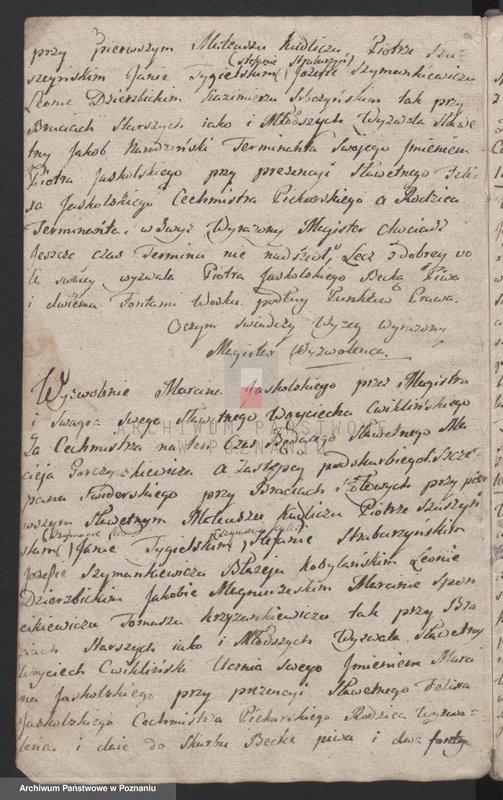 przy pierwszym Mateuszu Kudliczu, Piotrze Szu-
szyńskim Janie Tygielskim, Józefie Szymankiewiczu
Leonie Dzierzbickim Kazimierzu tak przy
Braciach Starszych iako i Młodszych Wyzwala Sławe
tny Jakob Terminanta Swojego Jmieniem
Piotra Jaskolskiego przy prezencyi Sławetnego Feli-
xa Jaskolskiego Cechmistra Piekarskiego a Rodzica
Terminanta, wzwyż Wyrażony Magister chociaż
Jeszcze czas Terminu nie nadszedł, Lecz z dobrey wo
li swoiey wyzwala Piotra Jaskolskiego Becka Piwa
i dwiema Fontami Wosku podług Punktow Prawa.
Oczym swiadczy Wyzey wyrażony
Magister Wyzwolenca.
Wyzwolenie Marcina Jaskolskiego przez Magistra
i swagra swego Sławetnego Woyciecha Cwiklińskiego
Za Cechmistra na ten Czas Będącego Sławetnego Ma
cieja Gorczyczkiewicza a Zastępcy podskarbiego Szcze-
pana Swiderskiego przy Braciach Stołowych przy pier
wszym Sławetnym Mateuszu Kudliczu Piotrze Szuszyń
skim, Janie Tygielskim, Stefanie Straburzyńskim
Józefie Szymankiewiczu Błażeju Kobylańskim Leonie
Dzierzbickim Jakobie Magnuszeskim Marcinie
Tomaszu Krzyżankiewiczu tak przy Bra
ciach Starszych iako i Młodszych Wyzwala Sławetny
Woyciech Cwikliński Ucznia swego Jmieniem Marci
na Jaskolskiego przy prezencyi Sławetnego Felixa
Jaskolskiego Cechmistra Piekarskiego Rodzica Wyzwo-
lenca i daie do Skarbu Beckę piwa i dwa fonty
ARCHIWUM PAŃSTWOWE
W POZNANIU
Archiwum Państwowe w Poznaniu